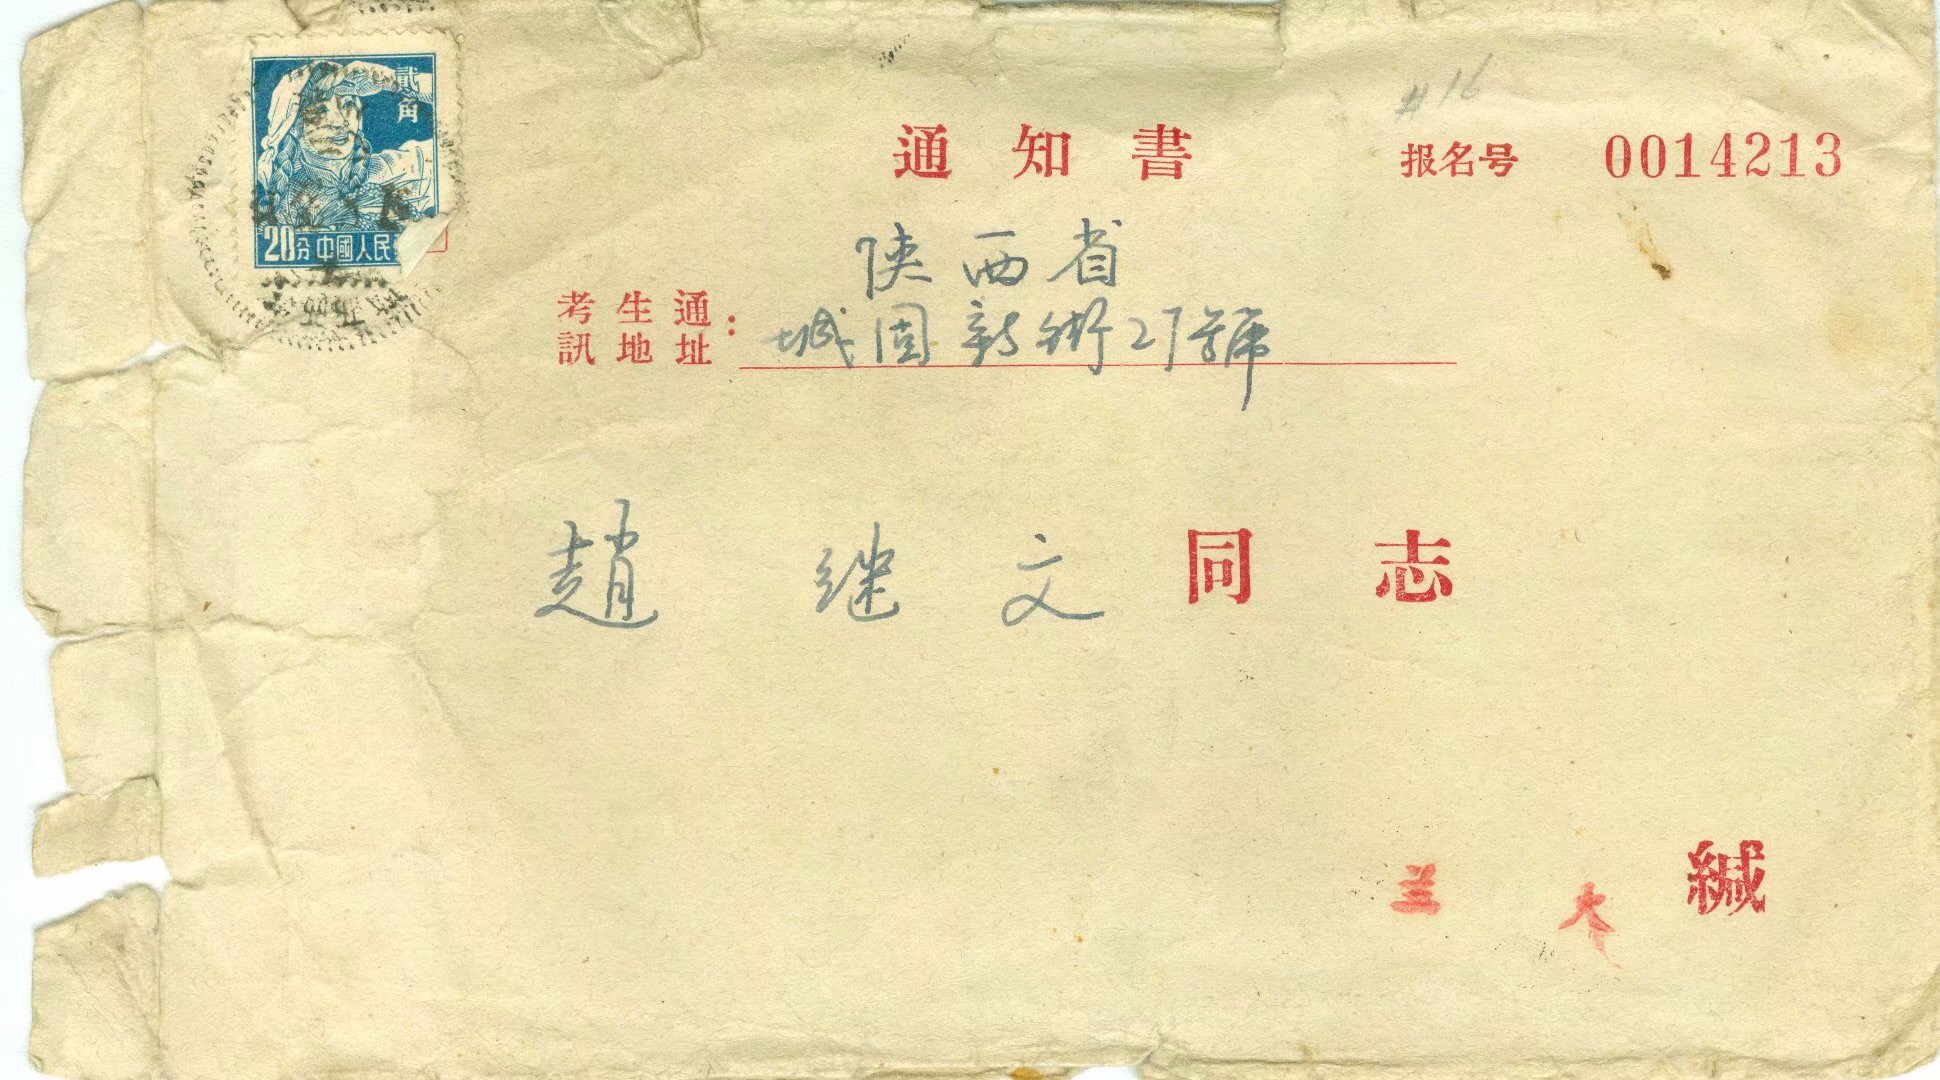 貳角
20分中國人民
#16
通知書
报名号 0014213
陕西省
考生通訊地址：城固新街27號
趙继文同志
兰大緘